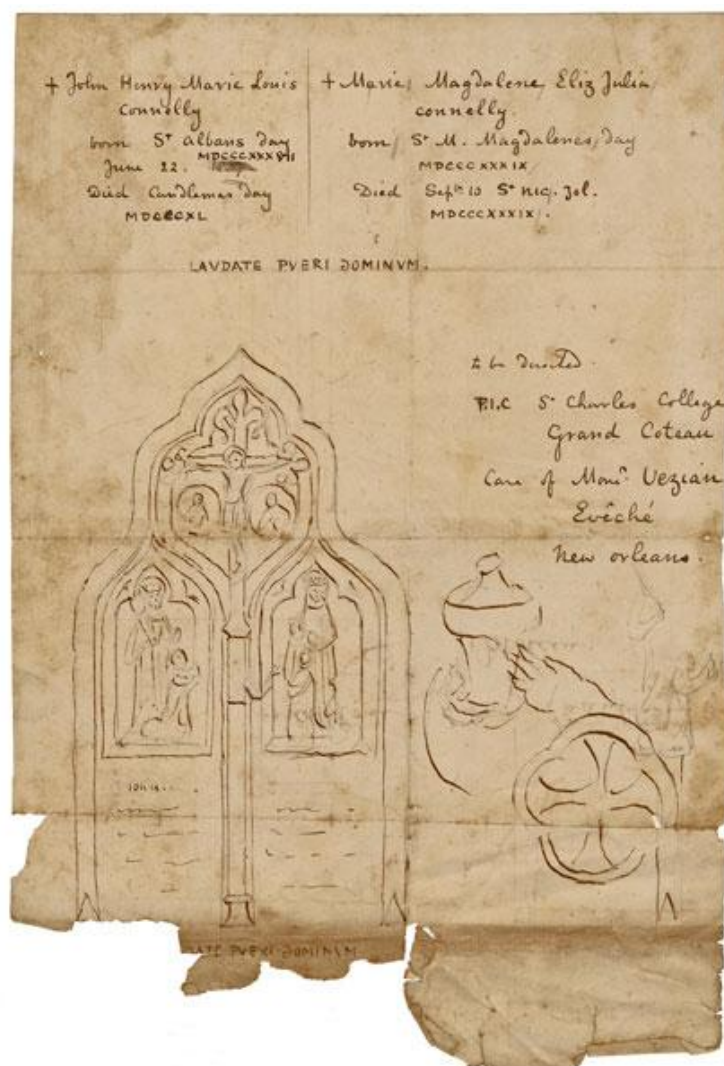 + John Henry Marie Louis
Connelly
born St Albans day
MDCCCXXXVII
June 22.
Died Candlemas day
MDCCCXL
+ Marie Magdalene Eliz Julia
connelly
born St M. Magdalenes day
MDCCCXXXIX
Died Septbr 10 St Nic. Tol.
MDCCCXXXIX.
LAVDATE PVERI DOMINVM.
to be directed
P.I.C St Charles College
Grand Coteau
Care of Monsr Vezian
Evêché
New orleans.
JOHN
ATE PVERI DOMINVM